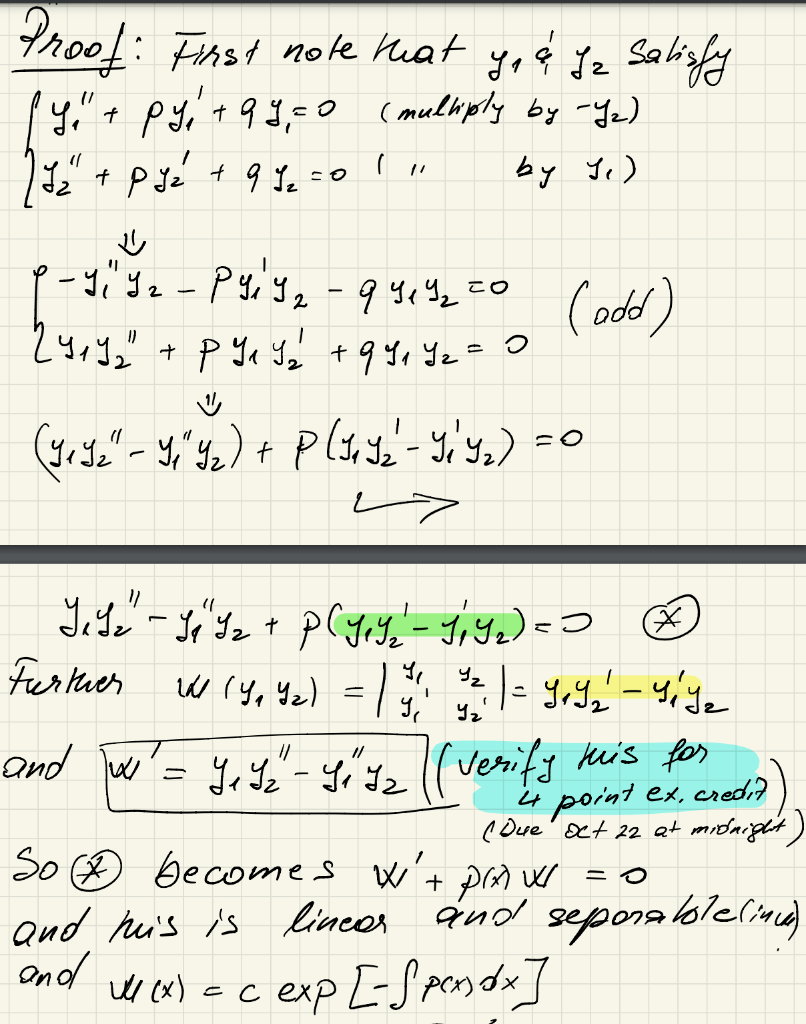 Proof: First note that y₁ & y₂ satisfy
y₁'' + py₁' + qy₁ = 0 (multiply by -y₂)
y₂'' + py₂' + qy₂ = 0 ( " by y₁)
⇓
-y₁''y₂ - py₁'y₂ - qy₁y₂ = 0 (add)
y₁y₂'' + py₁y₂' + qy₁y₂ = 0
⇓
(y₁y₂'' - y₁''y₂) + p(y₁y₂' - y₁'y₂) = 0
→
y₁y₂'' - y₁''y₂ + p(y₁y₂' - y₁'y₂) = 0 ⊛
Further W(y₁ y₂) = | y₁ y₂ ; y₁' y₂' | = y₁y₂' - y₁'y₂
and W' = y₁y₂'' - y₁''y₂ (verify this for
4 point ex. credit)
(Due Oct 22 at midnight)
So ⊛ becomes W' + p(x) W = 0
and this is linear and separable (in w)
and W(x) = c exp [-∫p(x)dx]